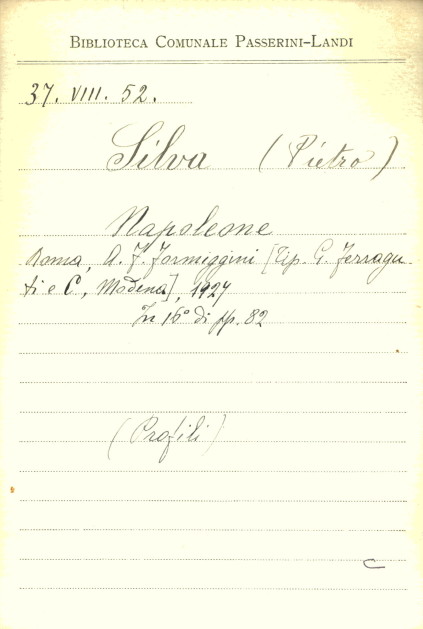 BIBLIOTECA COMUNALE PASSERINI-LANDI
37. VIII. 52.
Silva (Pietro)
Napoleone
Roma, A. F. Formiggini [Tip. G. Ferragu
ti e C, Modena], 1927
In 16° di pp. 82
(Profili)
C